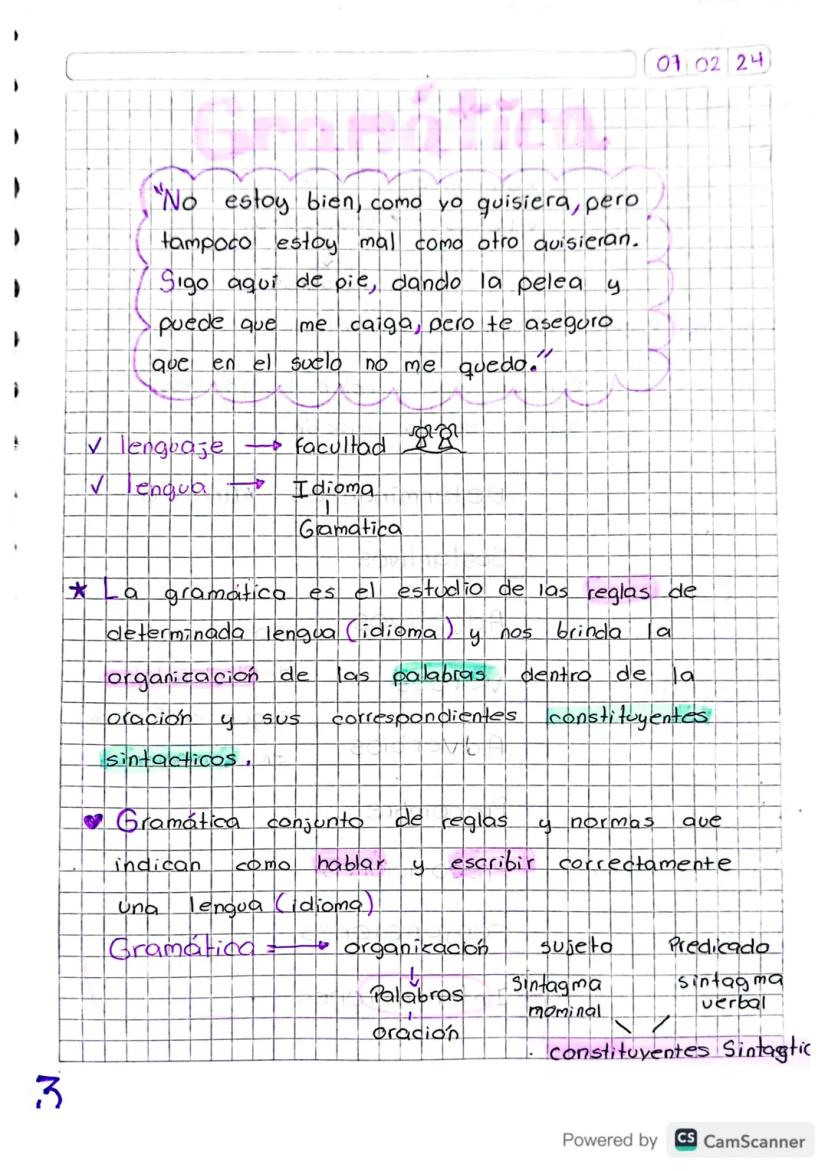 07 02 24
Gramática
"No estoy bien, como yo quisiera, pero
tampoco estoy mal como otro quisieran.
Sigo aquí de pie, dando la pelea y
puede que me caiga, pero te aseguro
que en el suelo no me quedo."
✓ lenguaje → facultad
✓ lengua → Idioma
Gramatica
★ La gramática es el estudio de las reglas de
determinada lengua (idioma) y nos brinda la
organización de las palabras dentro de la
oración y sus correspondientes constituyentes
sintacticos.
♥ Gramática conjunto de reglas y normas que
indican como hablar y escribir correctamente
una lengua (idioma)
Gramática → organización sujeto Predicado
Palabras sintagma nominal sintagma verbal
oración
constituyentes Sintagtic
3
Powered by CS CamScanner